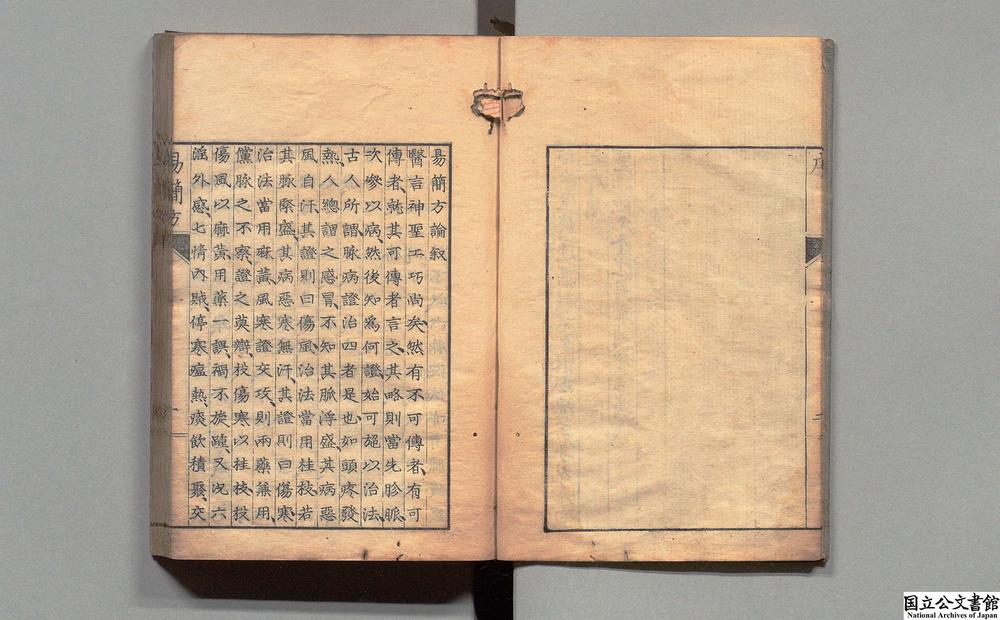 序
二
易簡方論叙
醫言神聖工巧尚矣然有不可傳者有可
傳者就其可傳者言之其略則當先胗脈
次參以病然後知爲何證始可施以治法
古人所謂脉病證治四者是也如頭疼發
熱人總謂之感冒不知其脈浮盛其病惡
風自汗其證則曰傷風治法當用桂枝若
其脉緊盛其病惡寒無汗其證則曰傷寒
治法當用麻黃風寒證交攻則兩藥兼用
儻脉之不察證之莫辯投傷寒以桂枝投
傷風以麻黃用藥一誤禍不旋踵又况六
淫外感七情內賊停寒瘟熱痰飲積聚交
易簡方
一
国立公文書館
National Archives of Japan